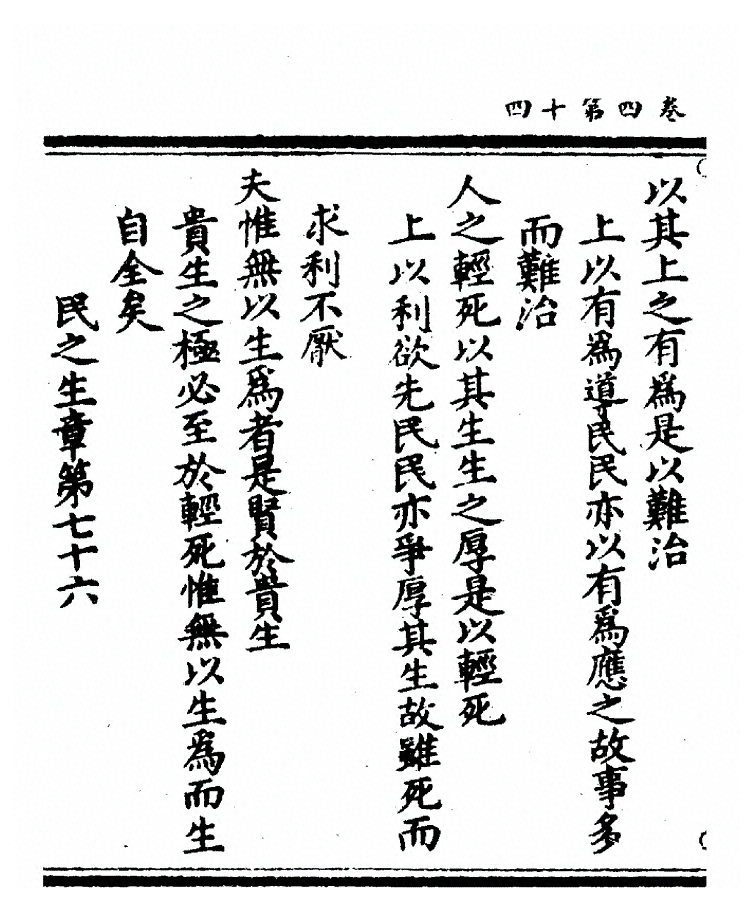 卷四第十四
以其上之有為是以難治
上以有為導民民亦以有為應之故事多
而難治
人之輕死以其生生之厚是以輕死
上以利欲先民民亦爭厚其生故雖死而
求利不厭
夫惟無以生為者是賢於貴生
貴生之極必至於輕死惟無以生為而生
自全矣
民之生章第七十六